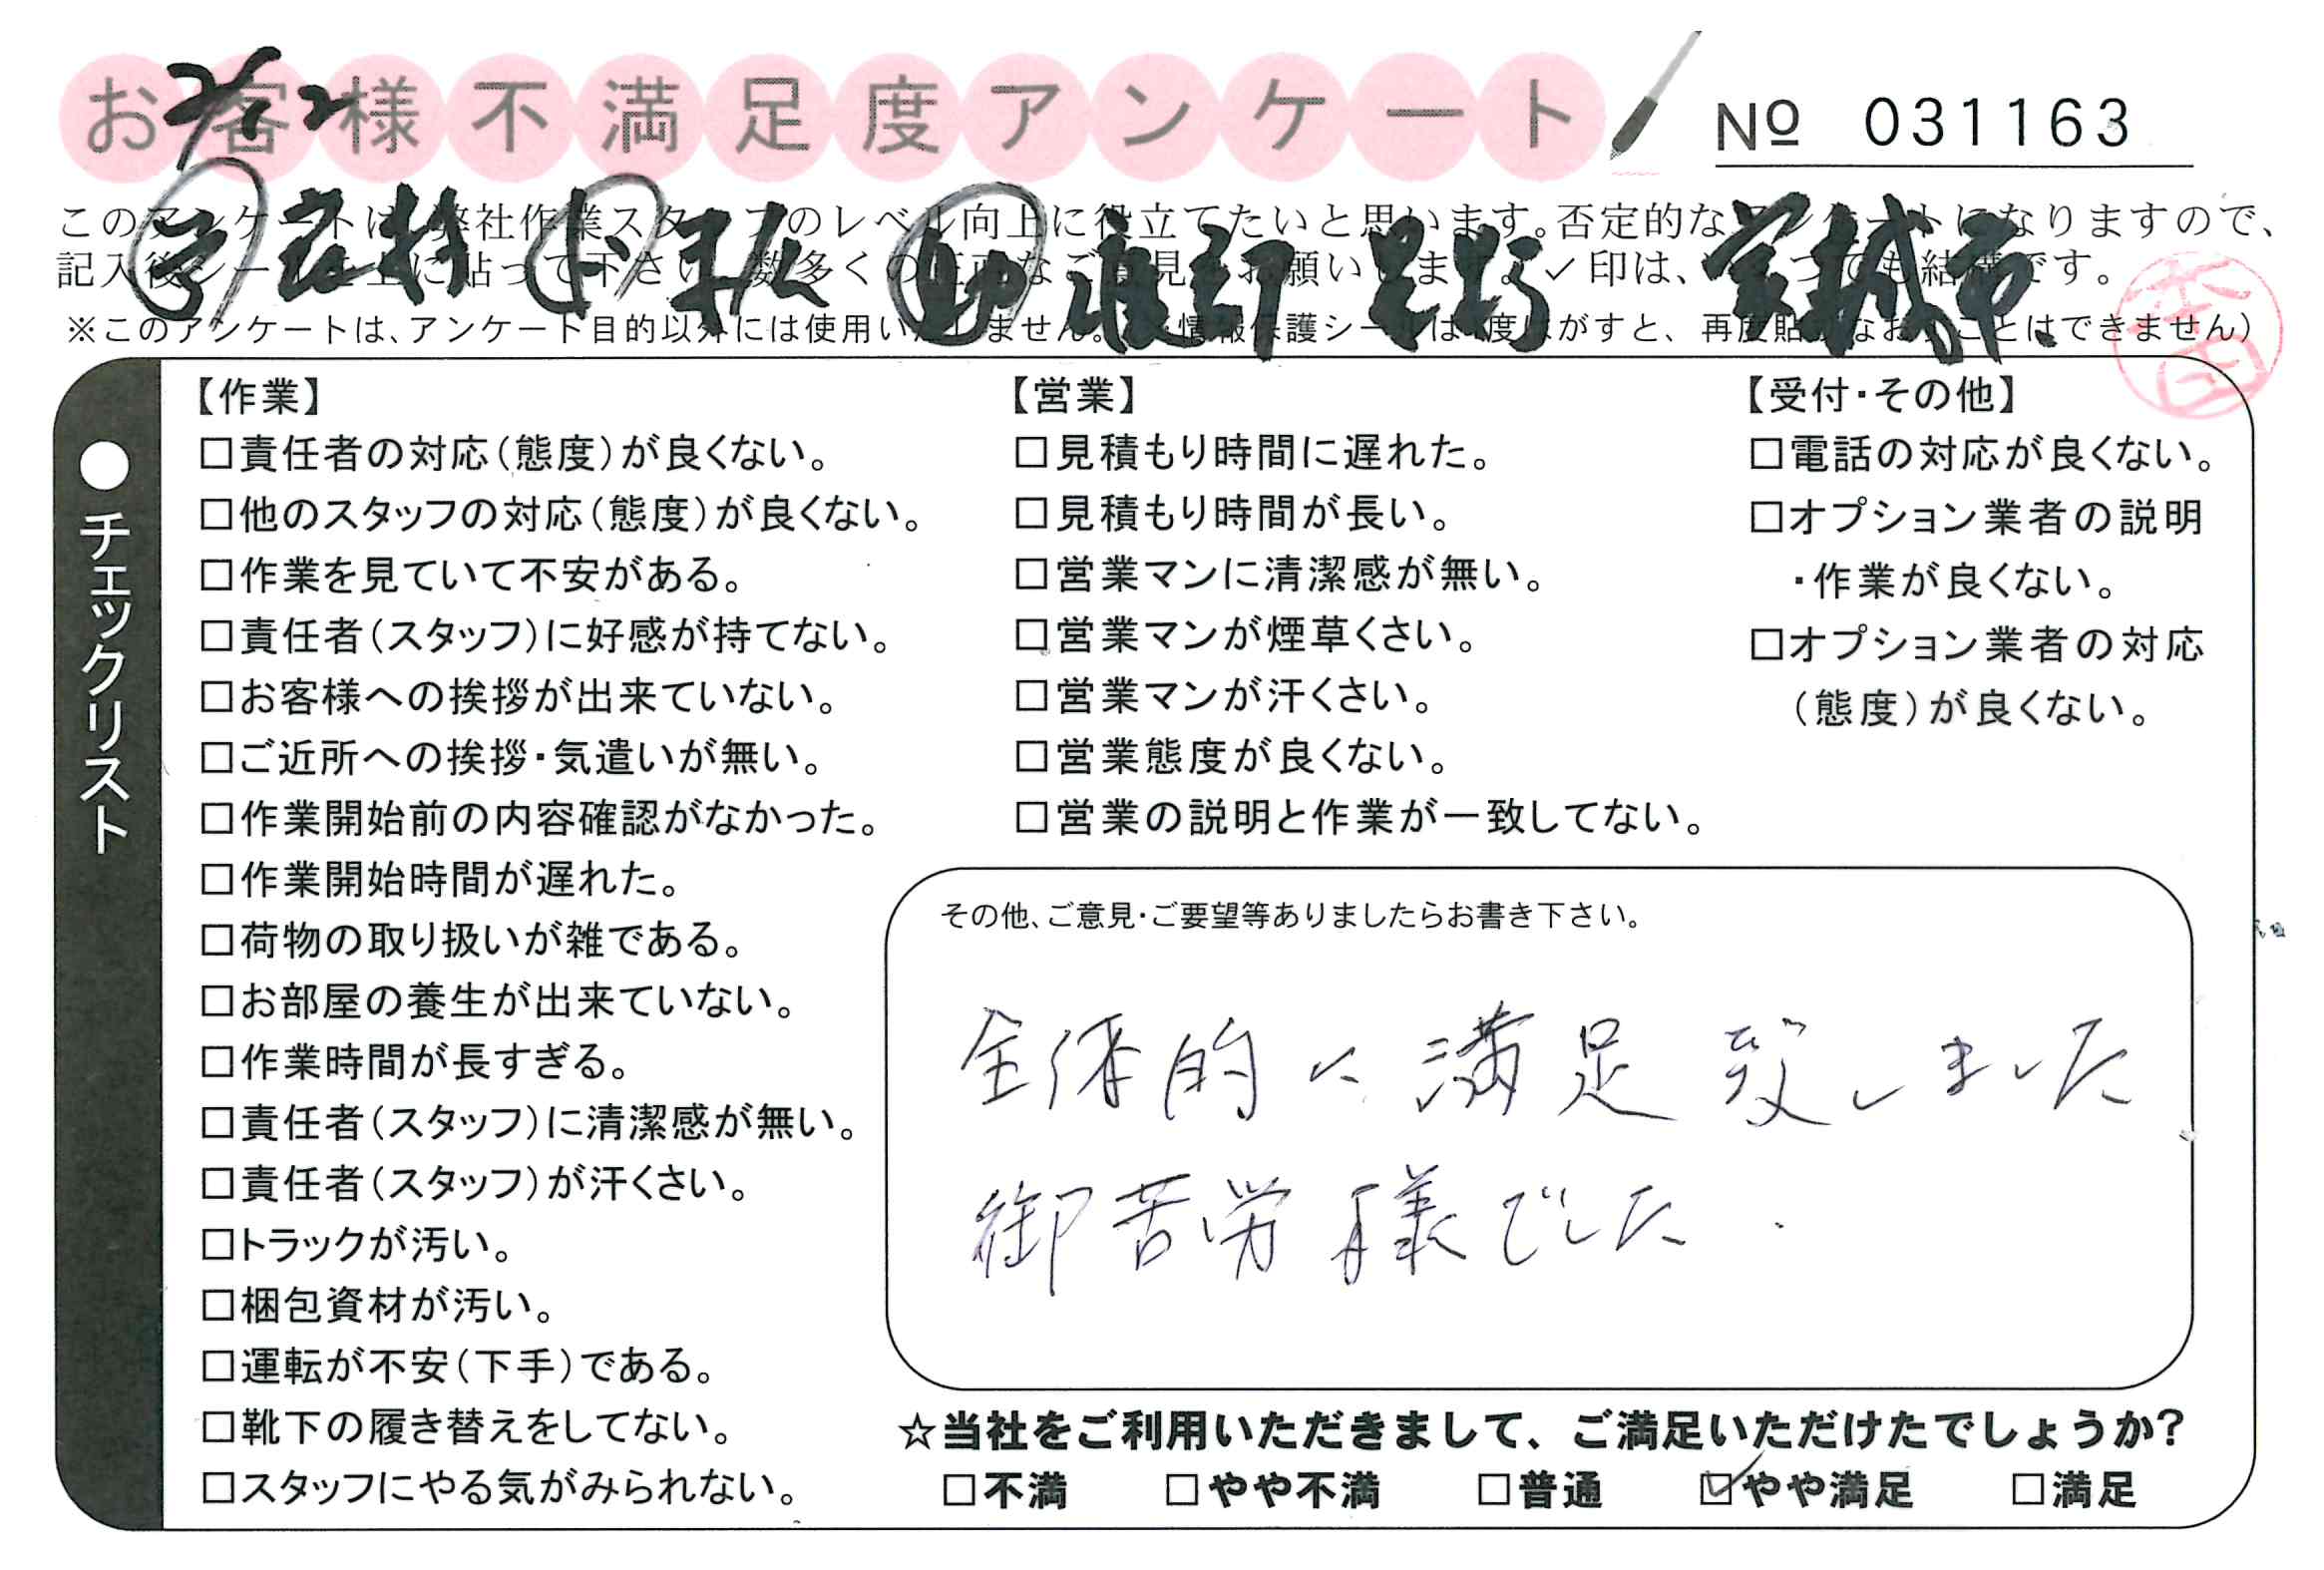 お客様不満足度アンケート
7/12
№ 031163
このアンケートは、弊社作業スタッフのレベル向上に役立てたいと思います。否定的なアンケートになりますので、
記入後シールを上に貼って下さい。数多くの正直なご意見をお願いします。✓印は、いくつでも結構です。
宮城市
※このアンケートは、アンケート目的以外には使用いたしません。(情報保護シールは1度はがすと、再度貼りなおすことはできません)
本田
●チェックリスト
【作業】
□責任者の対応(態度)が良くない。
□他のスタッフの対応(態度)が良くない。
□作業を見ていて不安がある。
□責任者(スタッフ)に好感が持てない。
□お客様への挨拶が出来ていない。
□ご近所への挨拶・気遣いが無い。
□作業開始前の内容確認がなかった。
□作業開始時間が遅れた。
□荷物の取り扱いが雑である。
□お部屋の養生が出来ていない。
□作業時間が長すぎる。
□責任者(スタッフ)に清潔感が無い。
□責任者(スタッフ)が汗くさい。
□トラックが汚い。
□梱包資材が汚い。
□運転が不安(下手)である。
□靴下の履き替えをしてない。
□スタッフにやる気がみられない。
【営業】
□見積もり時間に遅れた。
□見積もり時間が長い。
□営業マンに清潔感が無い。
□営業マンが煙草くさい。
□営業マンが汗くさい。
□営業態度が良くない。
□営業の説明と作業が一致してない。
【受付・その他】
□電話の対応が良くない。
□オプション業者の説明
・作業が良くない。
□オプション業者の対応
(態度)が良くない。
その他、ご意見・ご要望等ありましたらお書き下さい。
全体的に満足致しました
御苦労様でした.
☆当社をご利用いただきまして、ご満足いただけたでしょうか?
□不満 □やや不満 □普通 ☑やや満足 □満足